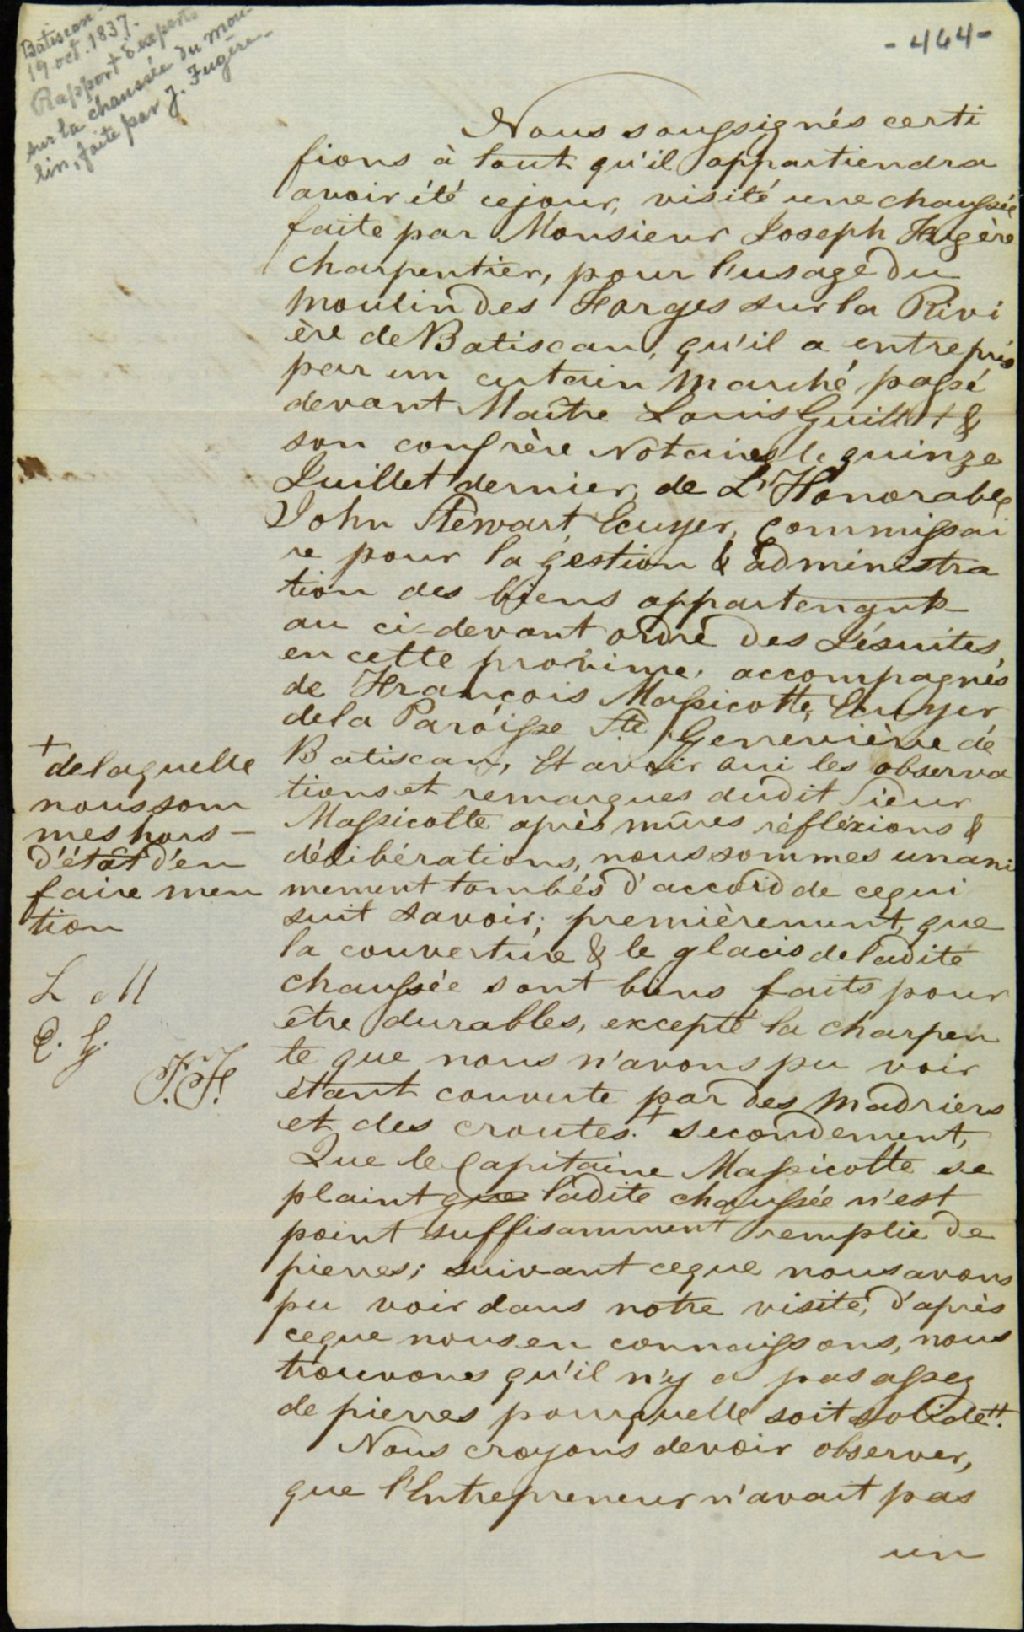 Batiscan-
19 oct. 1837.
Rapport d'experts
sur la chaussée du mou-
lin, faite par J. Fugère-
-464-
Nous soussignés certi
fions à tout qu'il appartiendra
avoir été cejour, visité une chaussée
faite par Monsieur Joseph Fugère
charpentier, pour l'usage du
moulin des Forges sur la Rivi
ère de Batiscan, qu'il a entrepris
par un certain marché, passé
devant Maître Louis Guillet &
son confrère Notaires le quinze
Juillet dernier, de L'Honorable
John Stewart, Ecuyer, Commissai
re pour la gestion & administra
tion des biens appartenants
au ci-devant ordre des Jésuites,
en cette province, accompagnés
de François Massicotte, Ecuyer
de la Paroisse Ste Geneviève de
Batiscan, Et avoir oui les observa
tions et remarques dudit Sieur
Massicotte après mûres réfléxions &
délibérations, nous sommes unani
mement tombés d'accord de cequi
suit savoir; premièrement, que
la couverture & le glacis de ladite
chaussée sont biens faits pour
être durables, excepté la charpen
te que nous n'avons pu voir
étant couverte par des madriers
et des croutes.+ secondement,
Que le Capitaine Massicotte se
plaint que ladite chaussée n'est
point suffisamment remplie de
pierres; suivant ceque nous avons
pu voir dans notre visite, d'après
ceque nous en connaissons, nous
trouvons qu'il n'y a pas assez
de pierres pourquelle soit solide++.
Nous croyons devoir observer,
que l'Entrepreneur n'avait pas
un
+
delaquelle
nous som
mes hors-
d'état d'en
faire men
tion
L M
E. G.
J. F.